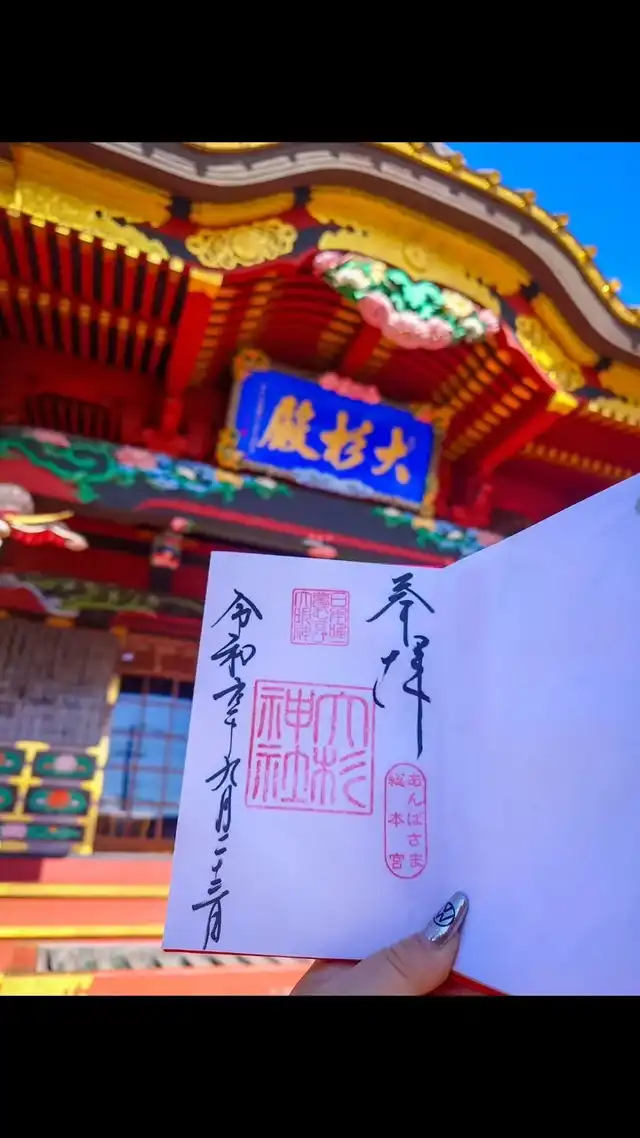 大杉殿
奉拝
あんばさま
総本宮
大杉
神社
令和六年九月二十三日